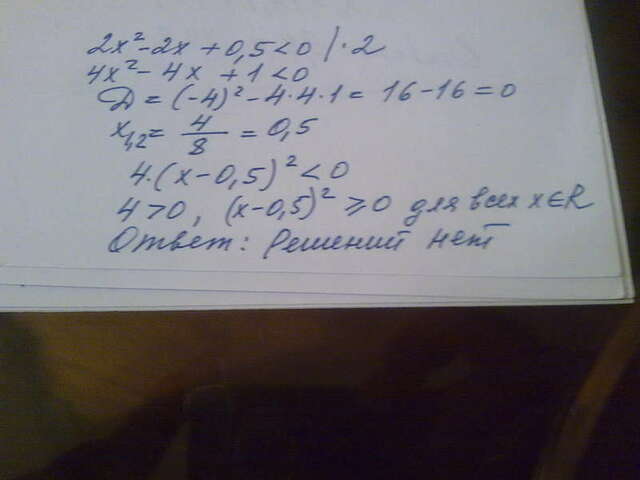 2x² - 2x + 0,5 < 0 | · 2
4x² - 4x + 1 < 0
D = (-4)² - 4·4·1 = 16 - 16 = 0
x₁,₂ = 4/8 = 0,5
4·(x - 0,5)² < 0
4 > 0, (x - 0,5)² ⩾ 0 для всех x ∈ R
Ответ: Решений нет